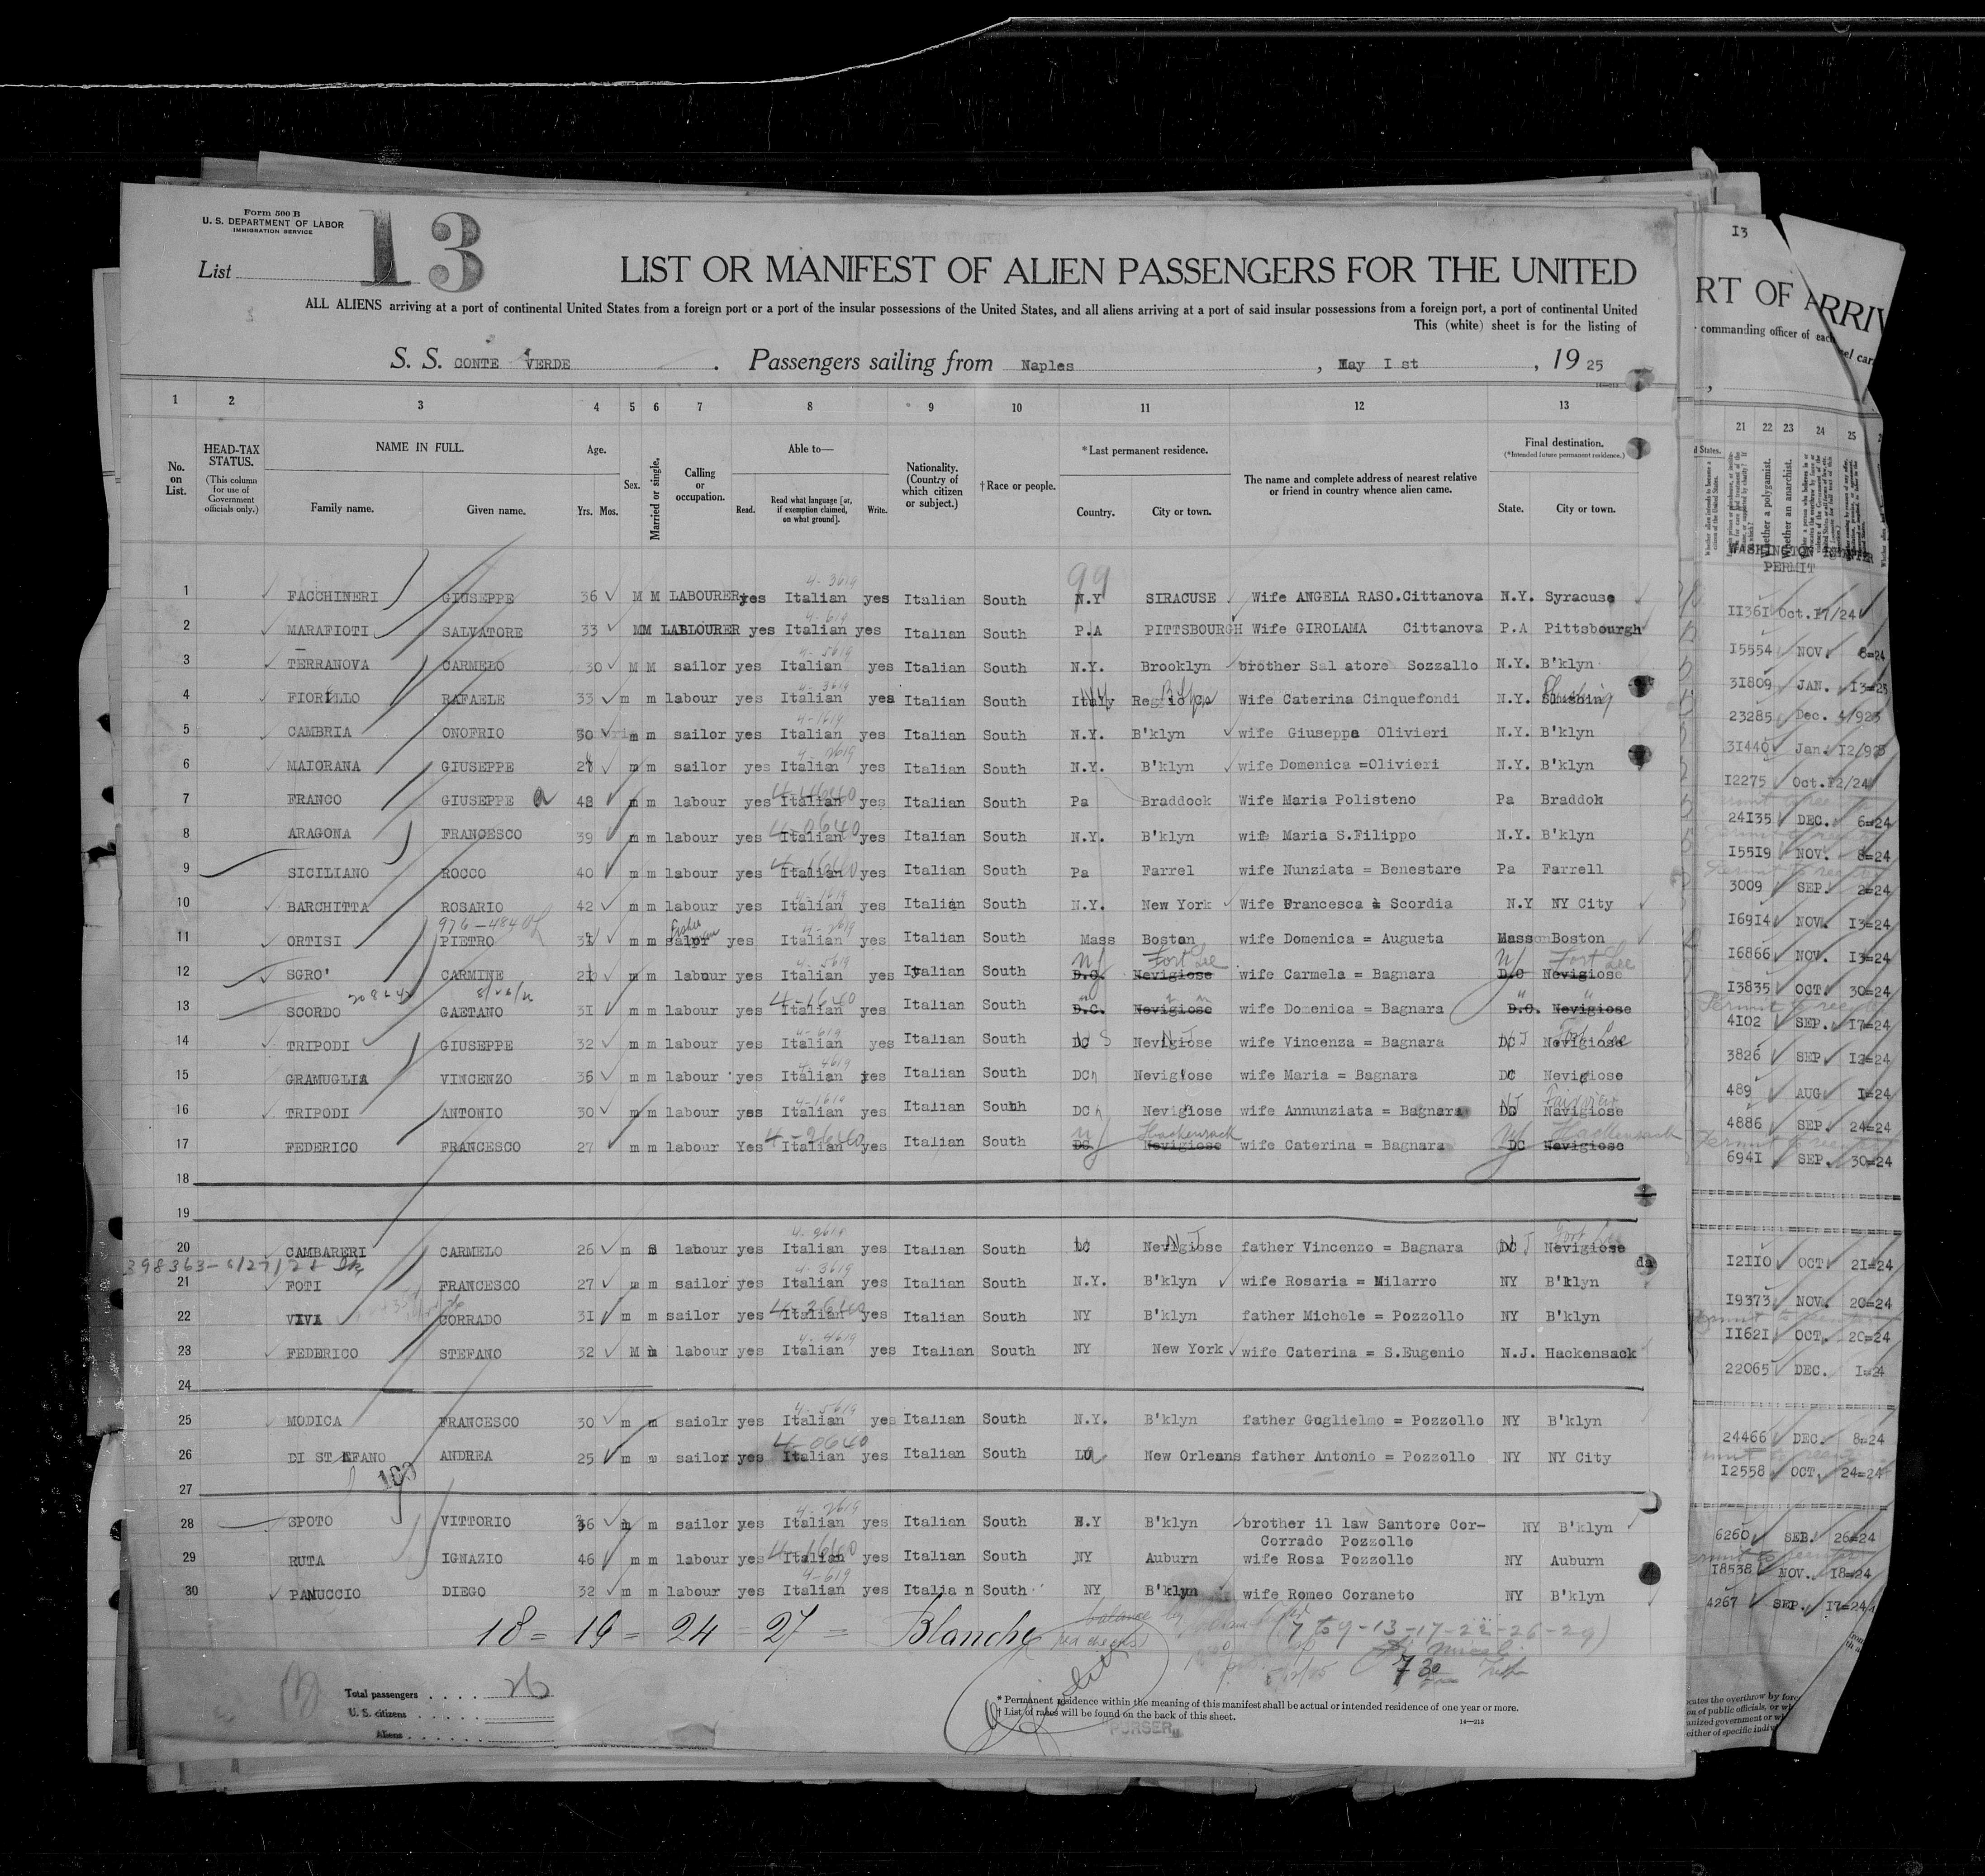 Form 500 B
U. S. DEPARTMENT OF LABOR
IMMIGRATION SERVICE
List 13
LIST OR MANIFEST OF ALIEN PASSENGERS FOR THE UNITED
ALL ALIENS arriving at a port of continental United States from a foreign port or a port of the insular possessions of the United States, and all aliens arriving at a port of said insular possessions from a foreign port, a port of continental United
This (white) sheet is for the listing of
S. S. CONTE VERDE . Passengers sailing from Naples , May I st , 19 25
1 2 3 4 5 6 7 8 9 10 11 12 13
No. on List.
HEAD-TAX STATUS. (This column for use of Government officials only.)
NAME IN FULL.
Family name. Given name.
Age. Yrs. Mos.
Sex.
Married or single.
Calling or occupation.
Able to—
Read. Read what language [or, if exemption claimed, on what ground]. Write.
Nationality. (Country of which citizen or subject.)
†Race or people.
*Last permanent residence.
Country. City or town.
The name and complete address of nearest relative or friend in country whence alien came.
Final destination.
(*Intended future permanent residence.)
State. City or town.
99
1 FACCHINERI GIUSEPPE 36 M M LABOURER yes Italian yes Italian South N.Y SIRACUSE Wife ANGELA RASO.Cittanova N.Y. Syracuse
2 MARAFIOTI SALVATORE 33 M M LABOURER yes Italian yes Italian South P.A PITTSBOURGH Wife GIROLAMA Cittanova P.A Pittsbourgh
3 TERRANOVA CARMELO 30 M M sailor yes Italian yes Italian South N.Y. Brooklyn brother Sal atore Sozzallo N.Y. B'klyn
4 FIORILLO RAFAELE 33 m m labour yes Italian yes Italian South Italy Wife Caterina Cinquefondi N.Y.
5 CAMBRIA ONOFRIO 30 m m sailor yes Italian yes Italian South N.Y. B'klyn wife Giuseppa Olivieri N.Y. B'klyn
6 MAIORANA GIUSEPPE m m sailor yes Italian yes Italian South N.Y. B'klyn wife Domenica =Olivieri N.Y. B'klyn
7 FRANCO GIUSEPPE 42 m m labour yes Italian yes Italian South Pa Braddock Wife Maria Polisteno Pa Braddok
8 ARAGONA FRANCESCO 39 m m labour yes Italian yes Italian South N.Y. B'klyn wife Maria S.Filippo N.Y. B'klyn
9 SICILIANO ROCCO 40 m m labour yes Italian yes Italian South Pa Farrel wife Nunziata = Benestare Pa Farrell
10 BARCHITTA ROSARIO 42 m m labour yes Italian yes Italian South N.Y. New York Wife Francesca Scordia N.Y NY City
11 ORTISI PIETRO m m yes Italian yes Italian South Mass Boston wife Domenica = Augusta Mass Boston
12 SGRO' CARMINE m m labour yes Italian yes Italian South NJ Fort Lee D.C. Nevigiose wife Carmela = Bagnara NJ Fort Lee D.C Nevigiose
13 SCORDO GAETANO 31 m m labour yes Italian yes Italian South D.C. Nevigiose wife Domenica = Bagnara D.C. Nevigiose
14 TRIPODI GIUSEPPE 32 m m labour yes Italian yes Italian South DC Nevigiose wife Vincenza = Bagnara DC Nevigiose
15 GRAMUGLIA VINCENZO 36 m m labour yes Italian yes Italian South DC Nevigiose wife Maria = Bagnara DC Nevigiose
16 TRIPODI ANTONIO 30 m m labour yes Italian yes Italian South DC Nevigiose wife Annunziata = Bagnara NJ Fairview Navigiose
17 FEDERICO FRANCESCO 27 m m labour Yes Italian yes Italian South NJ Hackensack DC Nevigiose wife Caterina = Bagnara NJ Hackensack DC Nevigiose
18
19
20 CAMBARERI CARMELO 26 m S labour yes Italian yes Italian South DC Nevigiose father Vincenzo = Bagnara DC Nevigiose
21 FOTI FRANCESCO 27 m m sailor yes Italian yes Italian South N.Y. B'klyn wife Rosaria = Milarro NY B'klyn
22 VIVA CORRADO 31 m m sailor yes Italian yes Italian South NY B'klyn father Michele = Pozzollo NY B'klyn
23 FEDERICO STEFANO 32 M m labour yes Italian yes Italian South NY New York wife Caterina = S.Eugenio N.J. Hackensack
24
25 MODICA FRANCESCO 30 m m saiolr yes Italian yes Italian South N.Y. B'klyn father Guglielmo = Pozzollo NY B'klyn
26 DI STEFANO ANDREA 25 m m sailor yes Italian yes Italian South New Orleans father Antonio = Pozzollo NY NY City
27
28 SPOTO VITTORIO 36 m m sailor yes Italian yes Italian South N.Y B'klyn brother il law Santore Cor-
Corrado Pozzollo NY B'klyn
29 RUTA IGNAZIO 46 m m labour yes Italian yes Italian South NY Auburn wife Rosa Pozzollo NY Auburn
30 PANUCCIO DIEGO 32 m m labour yes Italian yes Italia n South NY B'klyn wife Romeo Coraneto NY B'klyn
18 = 19 = 24 = 27 = Blanche
(7 to 9-13-17-22-26-29)
Total passengers . . . . 26
U. S. citizens
Aliens
* Permanent residence within the meaning of this manifest shall be actual or intended residence of one year or more.
† List of races will be found on the back of this sheet.
14—213
PURSER
13
RT OF ARRIV
commanding officer of each
21 22 23 24 25
Whether a polygamist.
Whether an anarchist.
WASHINGTON
PERMIT
11361 Oct.17/24
15554 NOV. 8=24
31809 JAN. 13=25
23285 Dec. 4/923
31440 Jan. 12/925
12275 Oct.12/24
24135 DEC. 6=24
15519 NOV. 8=24
3009 SEP. 2=24
16914 NOV. 13=24
16866 NOV. 13=24
13835 OCT. 30=24
4102 SEP. 17=24
3826 SEP. 13=24
489 AUG. 1=24
4886 SEP. 24=24
6941 SEP. 30=24
12110 OCT. 21=24
19373 NOV. 20=24
11621 OCT. 20=24
22065 DEC. 1=24
24466 DEC. 8=24
12558 OCT. 24=24
6260 SEB. 26=24
18538 NOV. 18=24
4267 SEP. 17=24